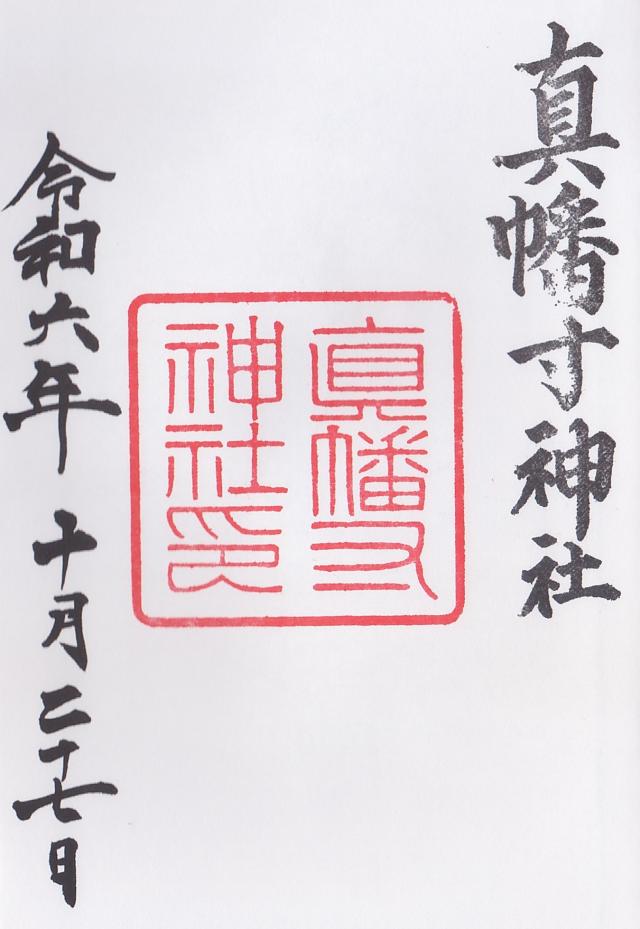 真幡寸神社
真幡寸
神社印
令和六年 十月二十七日